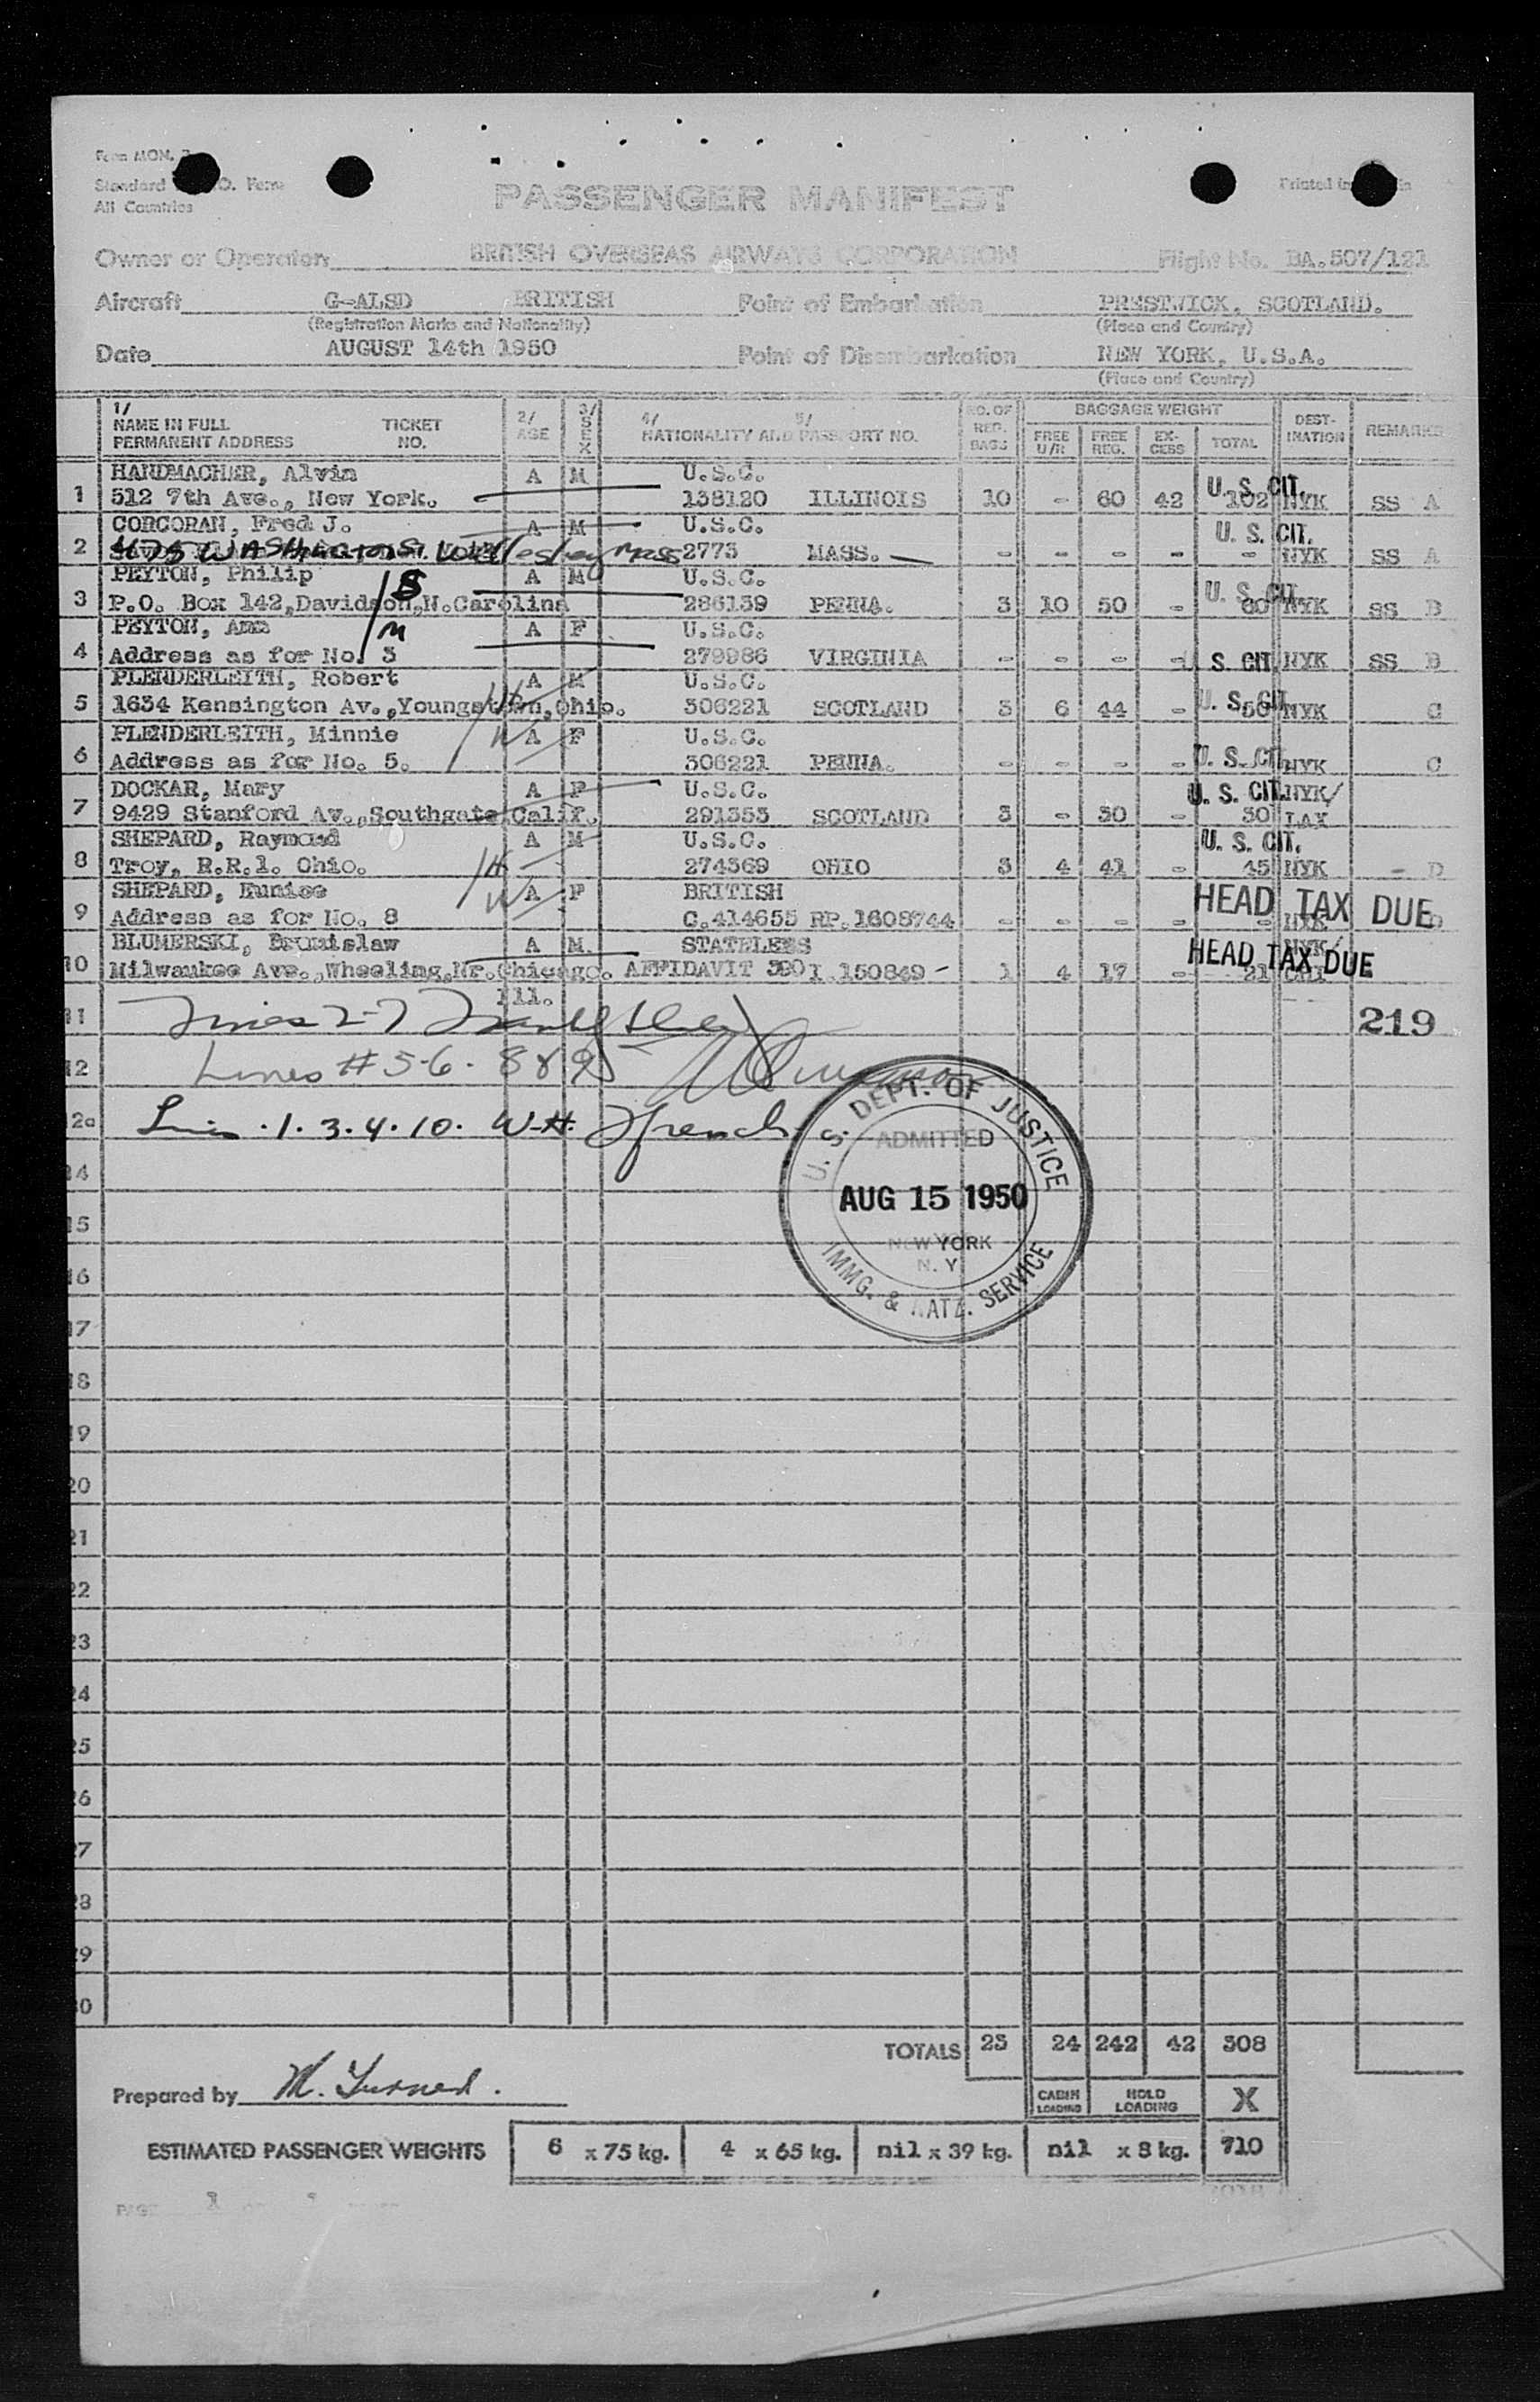 Form MON.
Standard O. Form
All Countries
Printed in
PASSENGER MANIFEST
Owner or Operator BRITISH OVERSEAS AIRWAYS CORPORATION Flight No. BA.507/121
Aircraft G-ALSD BRITISH Point of Embarkation PRESTWICK, SCOTLAND.
(Registration Marks and Nationality) (Place and Country)
Date AUGUST 14th 1950 Point of Disembarkation NEW YORK, U.S.A.
(Place and Country)
1/ NAME IN FULL PERMANENT ADDRESS TICKET NO. 2/ AGE 3/ SEX 4/ 5/ NATIONALITY AND PASSPORT NO. NO. OF REG. BAGS BAGGAGE WEIGHT FREE U/R FREE REG. EX-CESS TOTAL DEST-INATION REMARKS
HANDMACHER, Alvin A M U.S.C.
1 512 7th Ave., New York. 138120 ILLINOIS 10 - 60 42 102 U. S. CIT. NYK SS A
CORCORAN, Fred J. A M U.S.C. U. S. CIT.
2 475 WASHINGTON St. Wellesley Mass 2773 MASS. - - - - - NYK SS A
PEYTON, Philip S A M U.S.C. U. S. CIT.
3 P.O. Box 142, Davidson, N.Carolina 286139 PENNA. 3 10 50 - 60 NYK SS B
PEYTON, Ann M A F U.S.C.
4 Address as for No. 3 279986 VIRGINIA - - - - U. S. CIT. NYK SS B
PLENDERLEITH, Robert H A M U.S.C.
5 1634 Kensington Av., Youngstown, Ohio. 306221 SCOTLAND 3 6 44 - 50 U. S. CIT. NYK C
PLENDERLEITH, Minnie W A F U.S.C.
6 Address as for No. 5. 306221 PENNA. - - - - U. S. CIT. NYK C
DOCKAR, Mary A F U.S.C. U. S. CIT. NYK/
7 9429 Stanford Av., Southgate Calif. 291353 SCOTLAND 3 - 30 - 30 LAX
SHEPARD, Raymond A M U.S.C. U. S. CIT.
8 Troy, R.R.1. Ohio. H 274369 OHIO 3 4 41 - 45 NYK - D
SHEPARD, Eunice W A F BRITISH HEAD TAX DUE
9 Address as for No. 8 C.414655 RP.1608744 - - - - - NYK D
BLUMERSKI, Bronislaw A M. STATELESS HEAD TAX DUE NYK/
10 Milwaukee Ave., Wheeling, Nr. Chicago. AFFIDAVIT I.150849 - 1 4 17 - 21 CHI
Ill.
11 Lines 2-7 219
12 Lines # 5-6. 8 & 9
12a Lines .1.3.4.10. W.H. French
U. S. DEPT. OF JUSTICE
ADMITTED
AUG 15 1950
NEW YORK
N. Y.
IMMG. & NATZ. SERVICE
14
15
16
17
18
19
20
21
22
23
24
25
26
27
28
29
30
TOTALS 23 24 242 42 308
Prepared by M. Turner. CABIN LOADING HOLD LOADING X
ESTIMATED PASSENGER WEIGHTS 6 x 75 kg. 4 x 65 kg. nil x 39 kg. nil x 8 kg. 710
PAGE 1